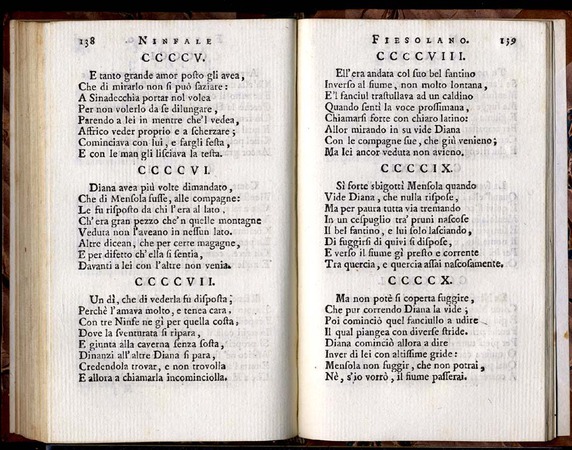 138 NINFALE
CCCCV.
E tanto grande amor posto gli avea,
Che di mirarlo non si può saziare:
A Sinadecchia portar nol volea
Per non volerlo da se dilungare,
Parendo a lei in mentre che'l vedea,
Affrico veder proprio e a scherzare;
Cominciava con lui, e fargli festa,
E con le man gli lisciava la testa.
CCCCVI.
Diana avea più volte dimandato,
Che di Mensola fusse, alle compagne:
Le fu risposto da chi l'era al lato,
Ch'era gran pezzo che'n quelle montagne
Veduta non l'aveano in nessun lato.
Altre dicean, che per certe magagne,
E per difetto ch'ella si sentia,
Davanti a lei con l'altre non venia.
CCCCVII.
Un dì, che di vederla fu disposta;
Perchè l'amava molto, e tenea cara,
Con tre Ninfe ne gì per quella costa,
Dove la sventurata si ripara,
E giunta alla caverna senza sosta,
Dinanzi all'altre Diana si para,
Credendola trovar, e non trovolla
E allora a chiamarla incominciolla.
FIESOLANO. 139
CCCCVIII.
Ell'era andata col suo bel fantino
Inverso al fiume, non molto lontana,
E'l fanciul trastullava ad un caldino
Quando sentì la voce prossimana,
Chiamarsi forte con chiaro latino:
Allor mirando in su vide Diana
Con le compagne sue, che giù venieno;
Ma lei ancor veduta non avieno.
CCCCIX.
Sì forte sbigottì Mensola quando
Vide Diana, che nulla rispose,
Ma per paura tutta via tremando
In un cespuglio tra' pruni nascose
Il bel fantino, e lui solo lasciando,
Di fuggirsi di quivi si dispose,
E verso il fiume gì presto e corrente
Tra quercia, e quercia assai nascosamente.
CCCCX.
Ma non potè sì coperta fuggire,
Che pur correndo Diana la vide;
Poi cominciò quel fanciullo a udire
Il qual piangea con diverse stride.
Diana cominciò allora a dire
Inver di lei con altissime gride:
Mensola non fuggir, che non potrai,
Nè, s'io vorrò, il fiume passerai.